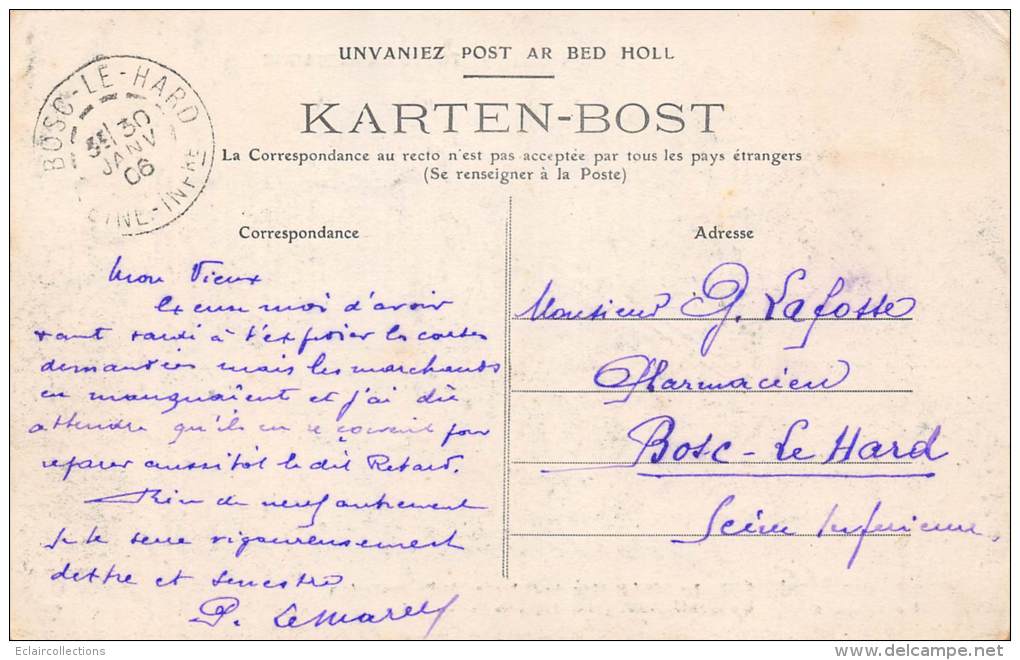 UNVANIEZ POST AR BED HOLL
KARTEN-BOST
La Correspondance au recto n'est pas acceptée par tous les pays étrangers
(Se renseigner à la Poste)
BOSC-LE-HARD
30
JANV
06
INE-INFRE
Correspondance
Mon Vieux
Excuse moi d'avoir
tant tardé à t'expédier les cartes
demandées mais les marchands
en manquaient et j'ai dû
attendre qu'ils en reçoivent pour
réparer aussitôt le dit Retard.
Rien de neuf autrement
Je te serre vigoureusement
dettre et senestre
P. Lemarel
Adresse
Monsieur G. Lafosse
Pharmacien
Bosc-Le Hard
Seine Inférieure.
Eclaircollections
delcampe.net